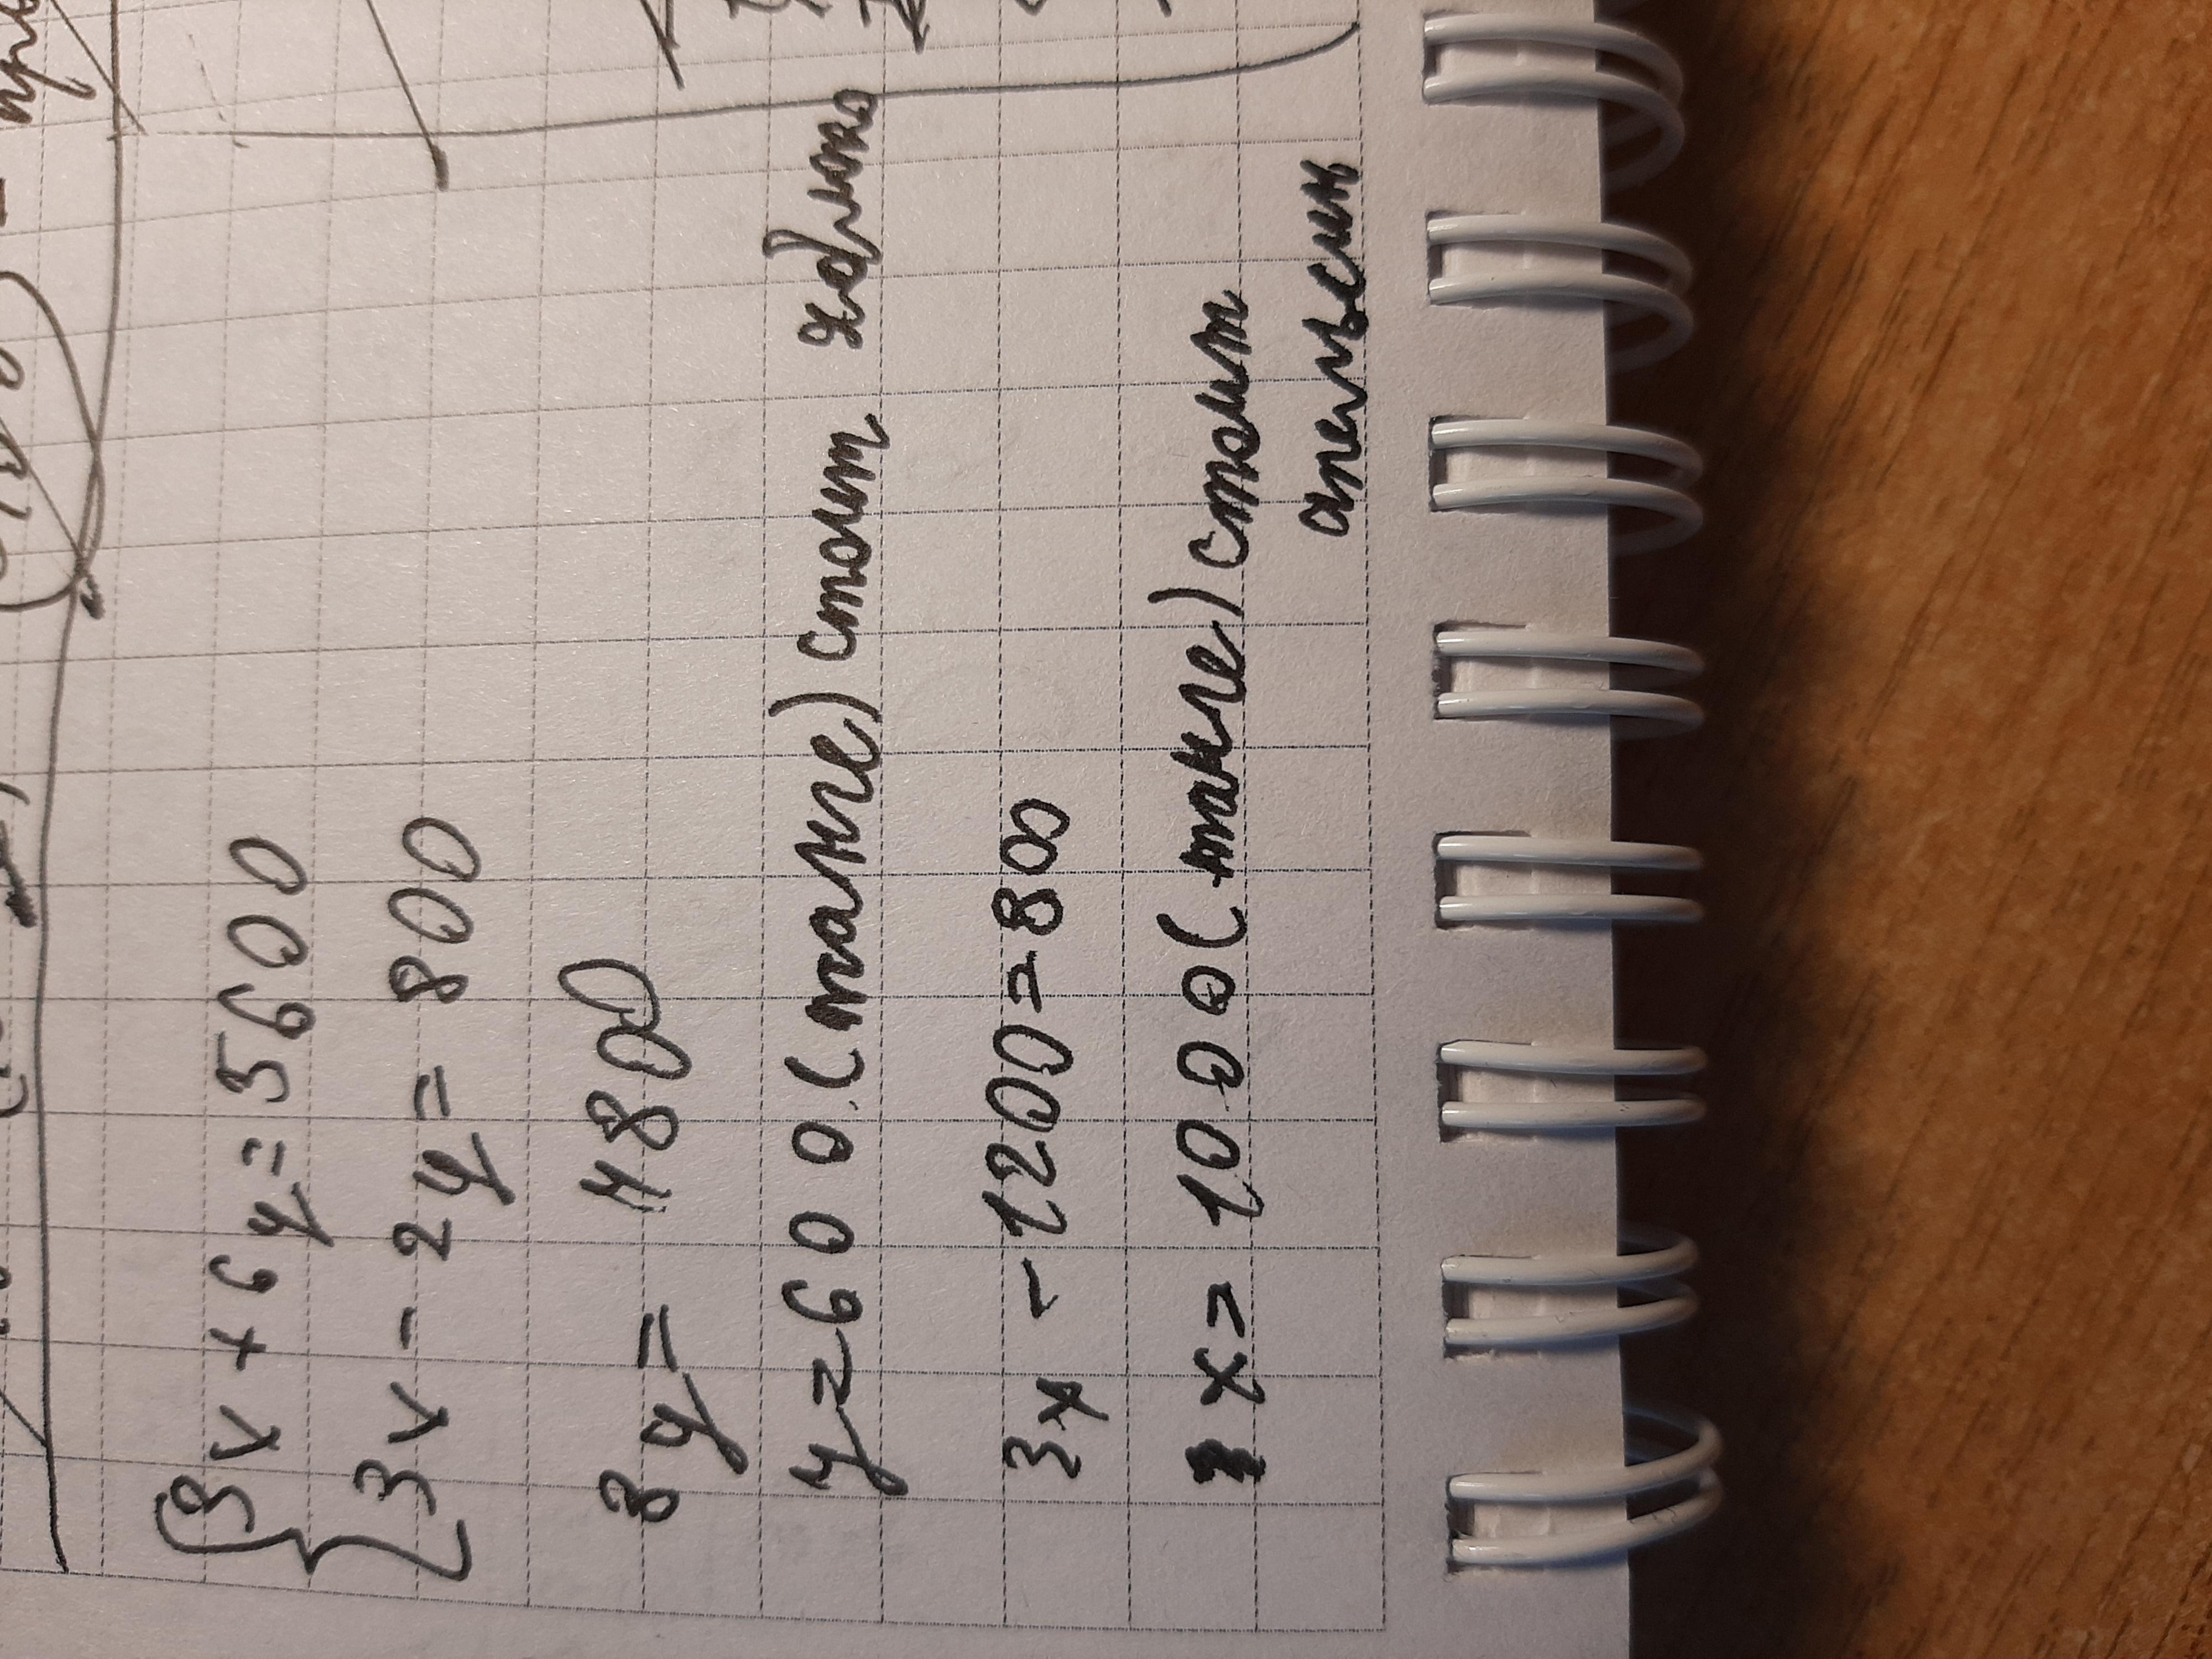 3x + 6y = 5600
3x - 2y = 800
8y = 480
y = 600 (тане) стоит яблоко
3x - 1200 = 800
x = 1000 (тане) стоит
апельсин